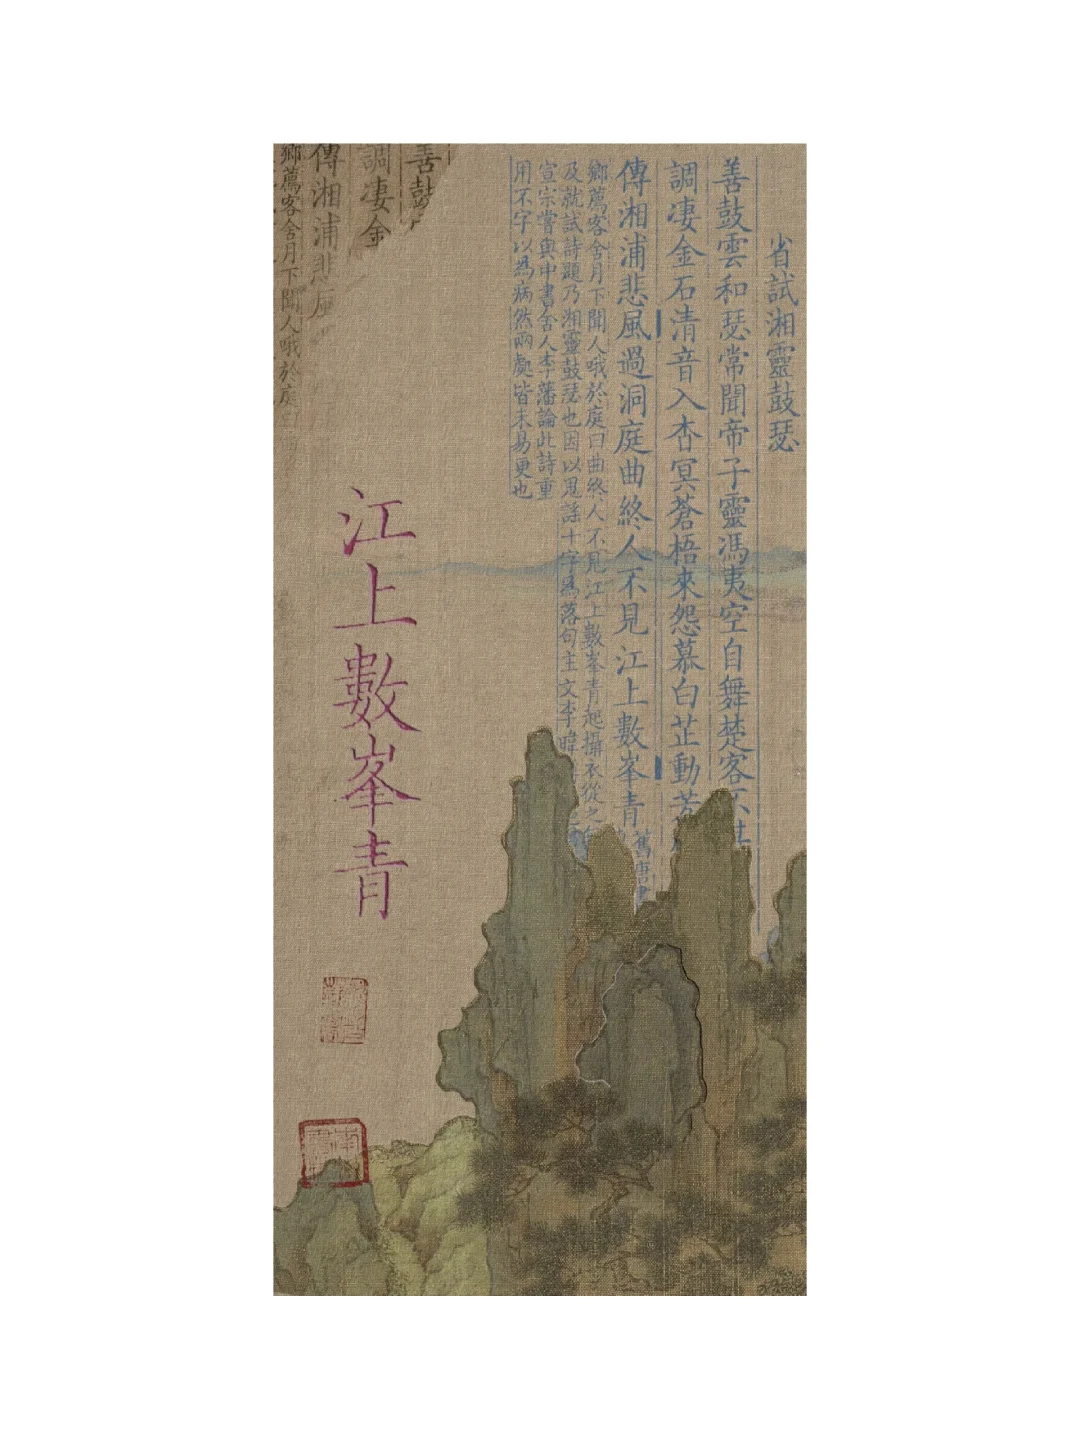 省試湘靈鼓瑟
善鼓雲和瑟常聞帝子靈馮夷空自舞楚客不
調凄金石清音入杳冥蒼梧來怨慕白芷動芳
傳湘浦悲風過洞庭曲終人不見江上數峯青舊唐書
鄉薦客舍月下聞人哦於庭曰曲終人不見江上數峯青起攝衣從之
及就試詩題乃湘靈鼓瑟也因以鬼謠十字爲落句主文李暐
宣宗嘗與中書舍人李藩論此詩重
用不字以爲病然兩處皆未易更也
善鼓
調凄金
傳湘浦悲風
鄉薦客舍月下聞人哦於庭
江上數峯青